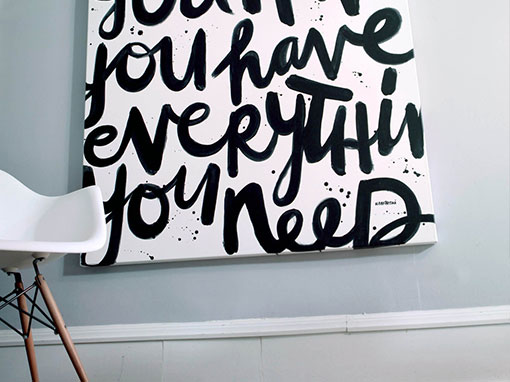 you have
everythin
you need